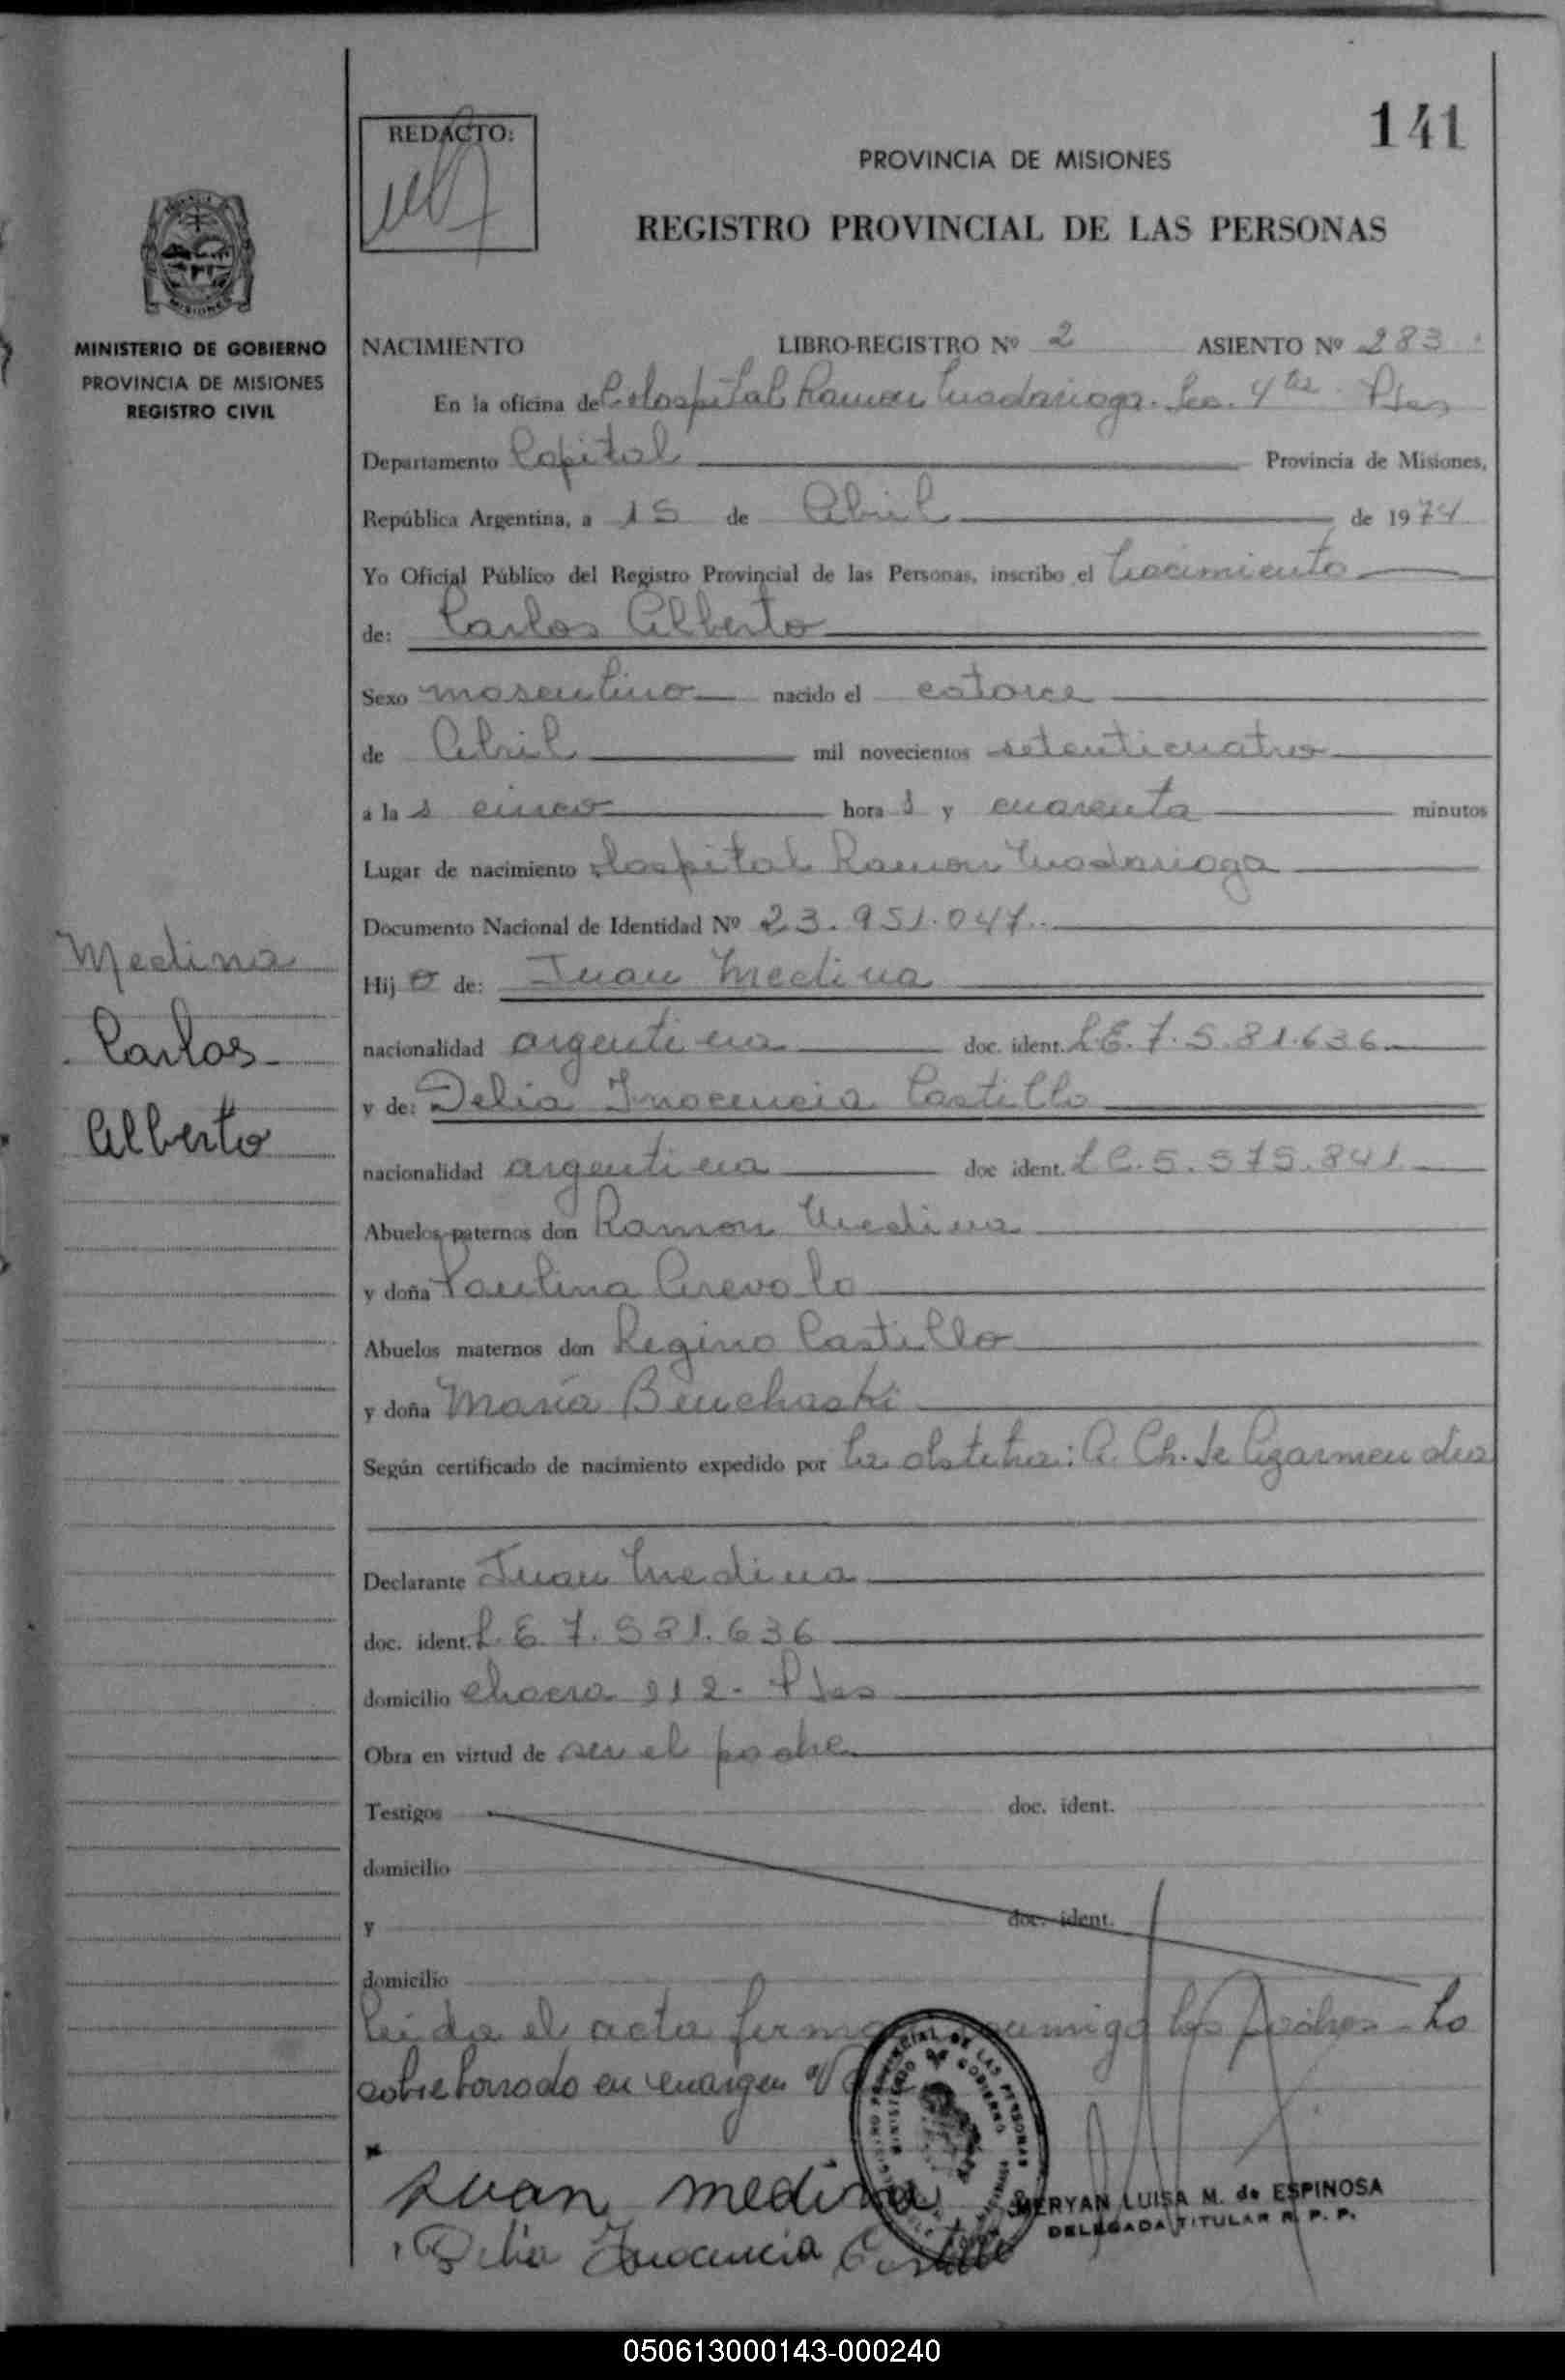 141
REDACTO:
PROVINCIA DE MISIONES
REGISTRO PROVINCIAL DE LAS PERSONAS
MINISTERIO DE GOBIERNO
PROVINCIA DE MISIONES
REGISTRO CIVIL
NACIMIENTO LIBRO-REGISTRO Nº 2 ASIENTO Nº 283
En la oficina del Hospital Ramon Madariaga. Sec. 4ta Pdas
Departamento Capital Provincia de Misiones,
República Argentina, a 15 de Abril de 1974
Yo Oficial Público del Registro Provincial de las Personas, inscribo el Nacimiento
de: Carlos Alberto
Sexo masculino nacido el catorce
de Abril mil novecientos setenticuatro
a las cinco horas y cuarenta minutos
Lugar de nacimiento Hospital Ramon Madariaga
Documento Nacional de Identidad Nº 23.951.047
Medina
Carlos
Alberto
Hijo de: Juan Medina
nacionalidad argentina doc. ident. L.E. 7.581.636
y de: Delia Inocencia Castillo
nacionalidad argentina doc ident. L.C. 5.575.841
Abuelos paternos don Ramon Medina
y doña Paulina Arevalo
Abuelos maternos don Regino Castillo
y doña Maria Benchaski
Según certificado de nacimiento expedido por la obstetra: A. Ch. de Agarmendia
Declarante Juan Medina
doc. ident. L.E 7.581.636
domicilio chacra 212- Pdas
Obra en virtud de ser el padre
Testigos doc. ident.
domicilio
y doc. ident.
domicilio
Leida el acta firman conmigo los padres- Lo
sobreborrado en margen
Juan medina
Delia Inocencia Castillo
MERYAN LUISA M. de ESPINOSA
DELEGADA TITULAR R. P. P.
050613000143-000240